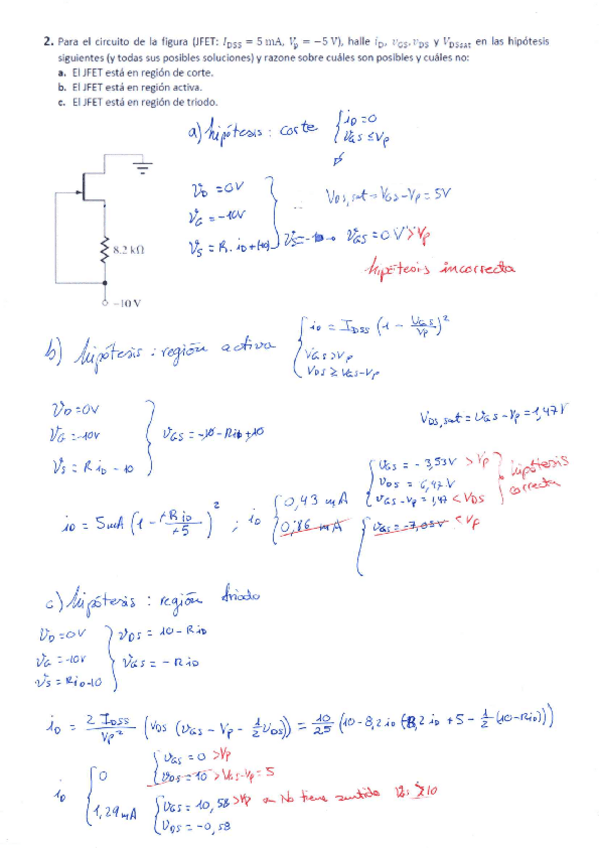 2. Para el circuito de la figura (JFET: I_DSS = 5 mA, V_p = −5 V), halle i_D, v_GS, v_DS y V_DSsat en las hipótesis
siguientes (y todas sus posibles soluciones) y razone sobre cuáles son posibles y cuáles no:
a. El JFET está en región de corte.
b. El JFET está en región activa.
c. El JFET está en región de triodo.
a) hipótesis: corte { i_D = 0
v_GS ≤ V_p
v_D = 0V
v_G = -10V
V_DS,sat = V_GS - V_p = 5V
v_S = R. i_D + (-10)
v_S = -10 → v_GS = 0V > V_p
hipótesis incorrecta
8.2 kΩ
−10 V
b) hipótesis: región activa
i_D = I_DSS (1 - V_GS/V_p)²
v_GS > V_p
V_DS ≥ V_GS - V_p
v_D = 0V
v_G = -10V
v_S = R i_D - 10
v_GS = -10 - R i_D + 10
V_DS,sat = V_GS - V_p = 1,47V
i_D = 5mA (1 - +R i_D / +5)² ; i_D { 0,43 mA
0,86 mA
v_GS = -3,53V > V_p
v_DS = 6,47V
v_GS - V_p = 1,47 < V_DS
hipótesis correcta
v_GS = -7,05V < V_p
c) hipótesis: región triodo
v_D = 0V
v_G = -10V
v_S = R i_D - 10
v_DS = 10 - R i_D
v_GS = - R i_D
i_D = 2 I_DSS / V_p² (v_DS (v_GS - V_p - 1/2 v_DS)) = 10/25 (10 - 8,2 i_D (-8,2 i_D + 5 - 1/2 (10 - R i_D)))
i_D { 0
1,29 mA
v_GS = 0 > V_p
v_DS = 10 > V_GS - V_p = 5
v_GS = 10,58 > V_p → No tiene sentido
v_DS = -0,58